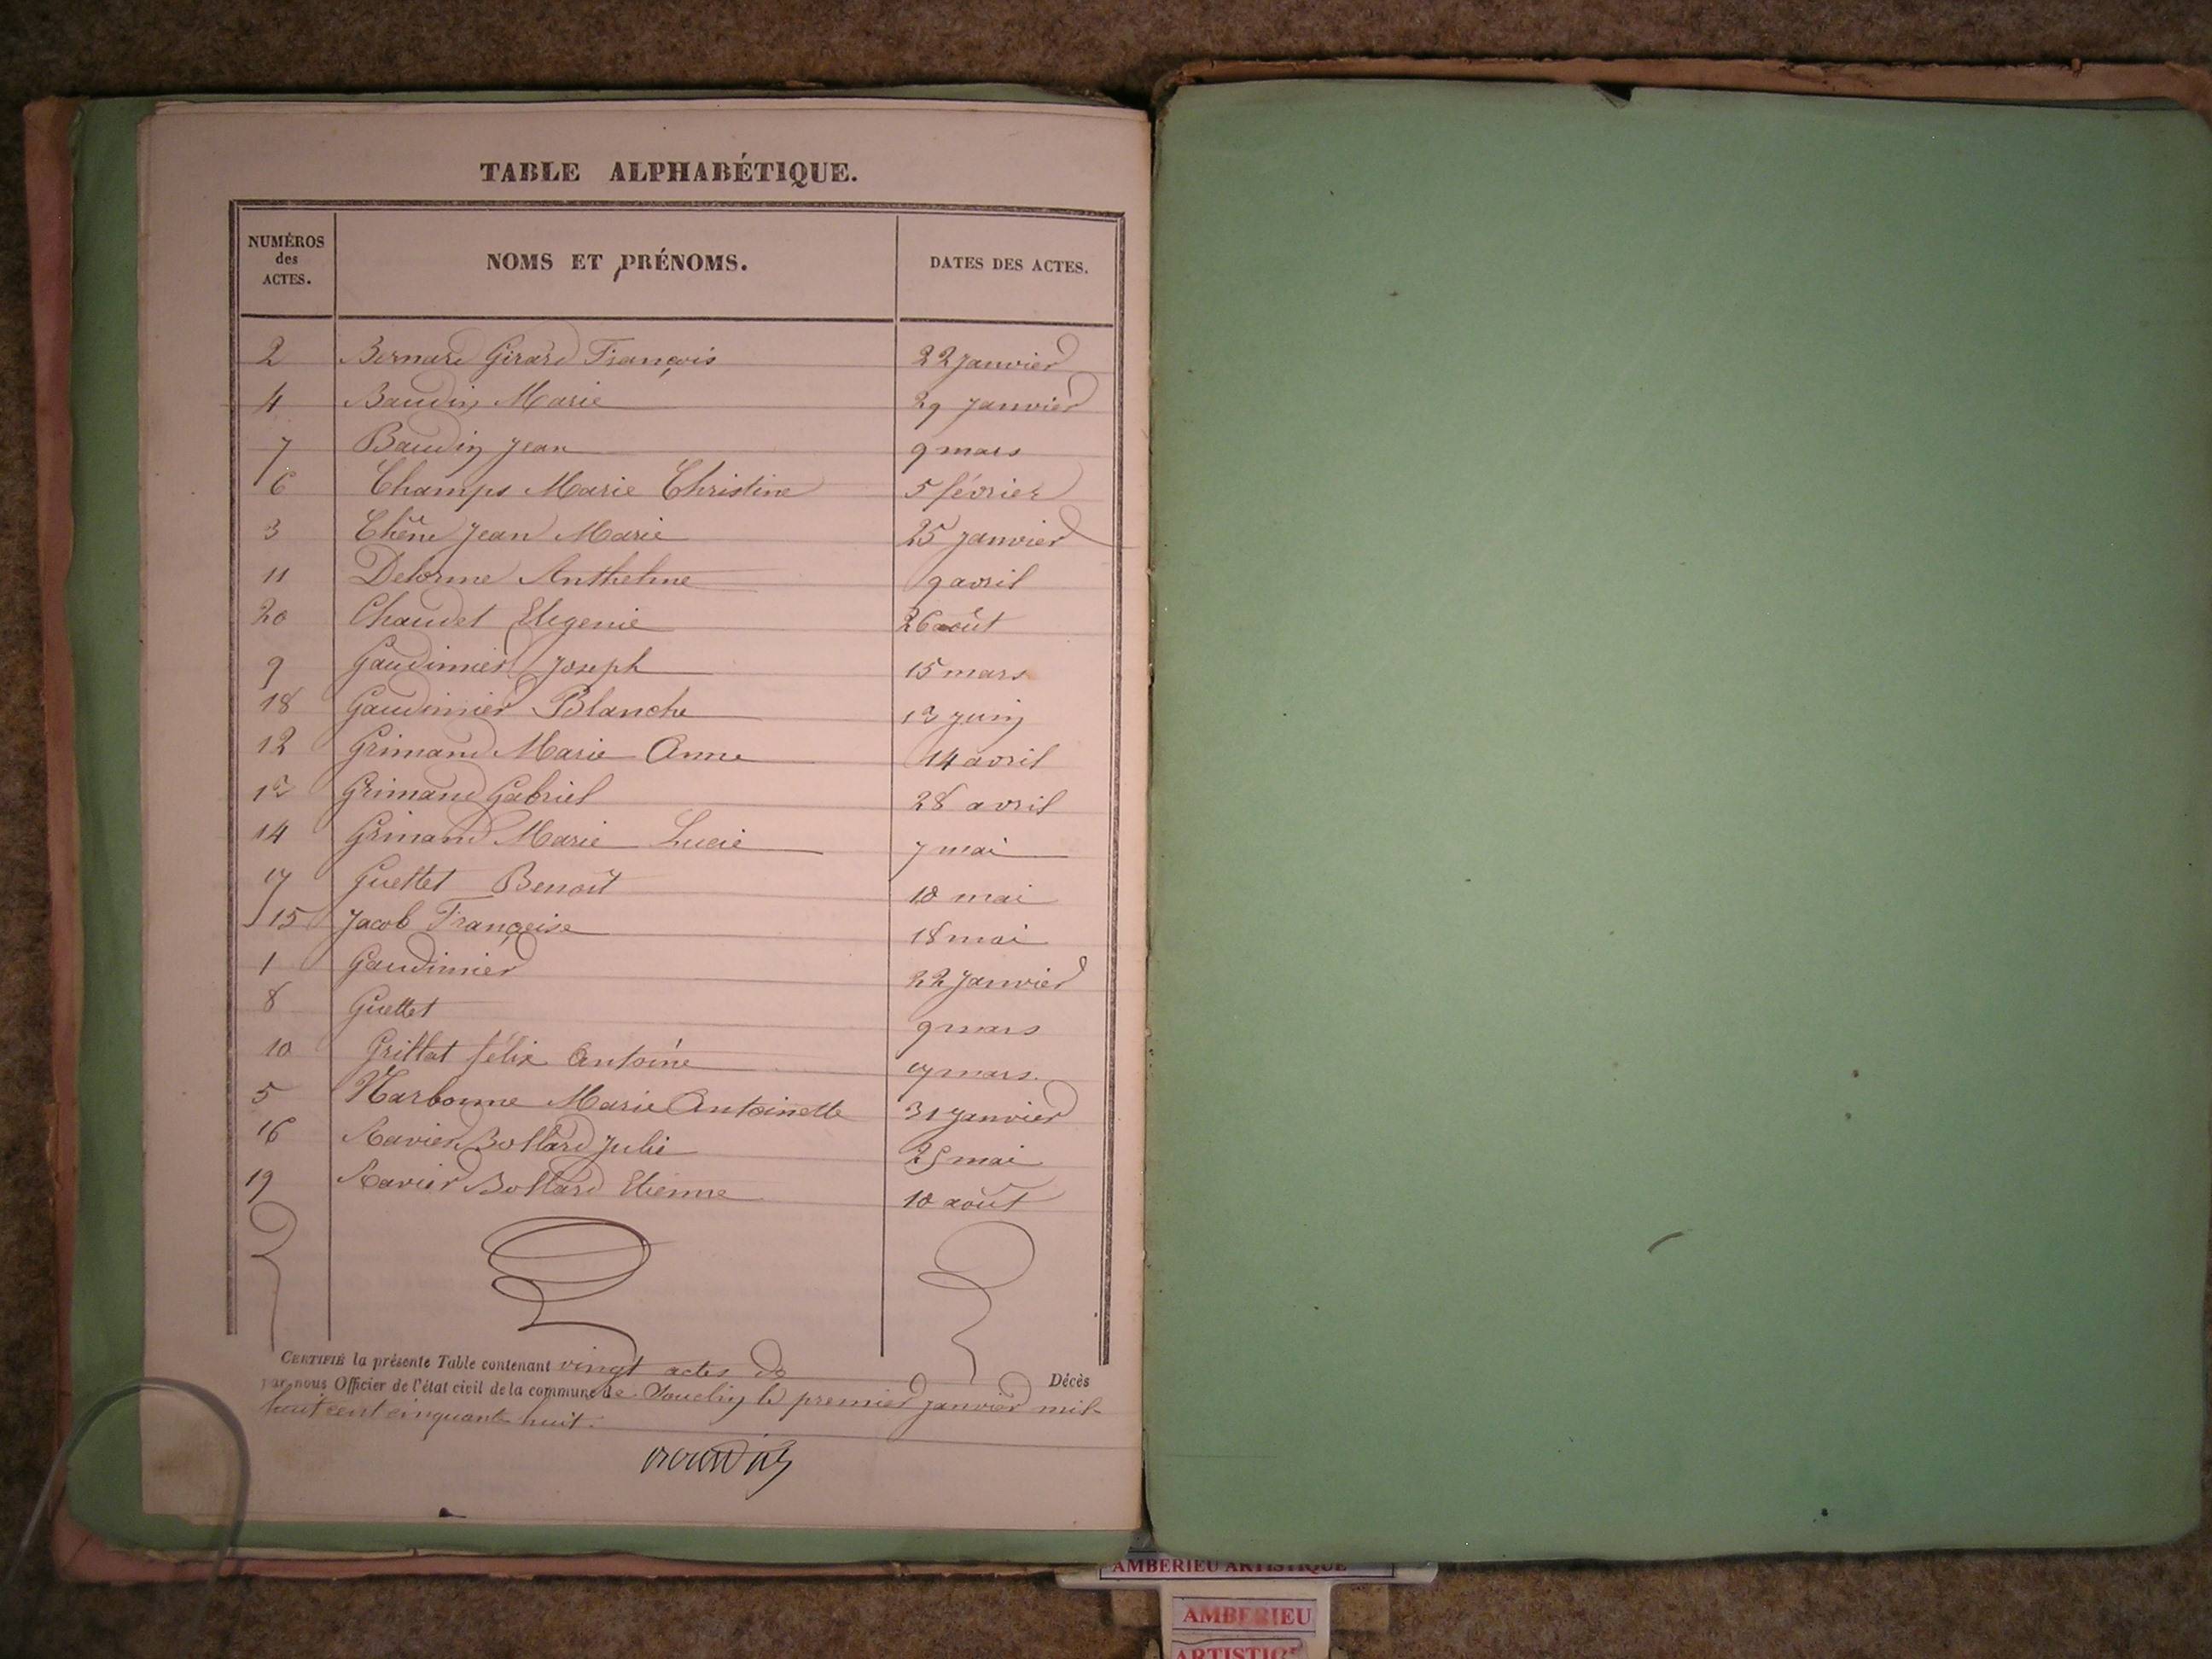 TABLE ALPHABÉTIQUE.
NUMÉROS des ACTES. NOMS ET PRÉNOMS. DATES DES ACTES.
2 Bernard Girard François 22 Janvier
4 Baudin Marie 29 Janvier
7 Baudin Jean 9 mars
6 Champs Marie Christine 5 février
3 Chêne Jean Marie 25 Janvier
11 Delorme Anthelme 9 avril
20 Chaudet 26 août
9 Gaudinier Joseph 15 mars
18 Gaudinier Blanche 13 Juin
12 Grimand Marie Anne 14 avril
13 Grimand Gabriel 28 avril
14 Grimand Marie Lucie 7 mai
17 Guettet Benoit 10 mai
15 Jacob Françoise 18 mai
1 Gaudinier 22 Janvier
8 Guettet 9 mars
10 Grillat félix Antoine 17 mars.
5 Narbonne Marie Antoinette 31 Janvier
16 Ravier Bollard Julie mai
19 Ravier Bollard Etienne 10 août
CERTIFIÉ la présente Table contenant vingt actes de Décès
par nous Officier de l'état civil de la commune de Souclin le premier Janvier mil
huit cent cinquante huit.
AMBERIEU ARTISTIQUE
AMBERIEU
ARTISTIQ